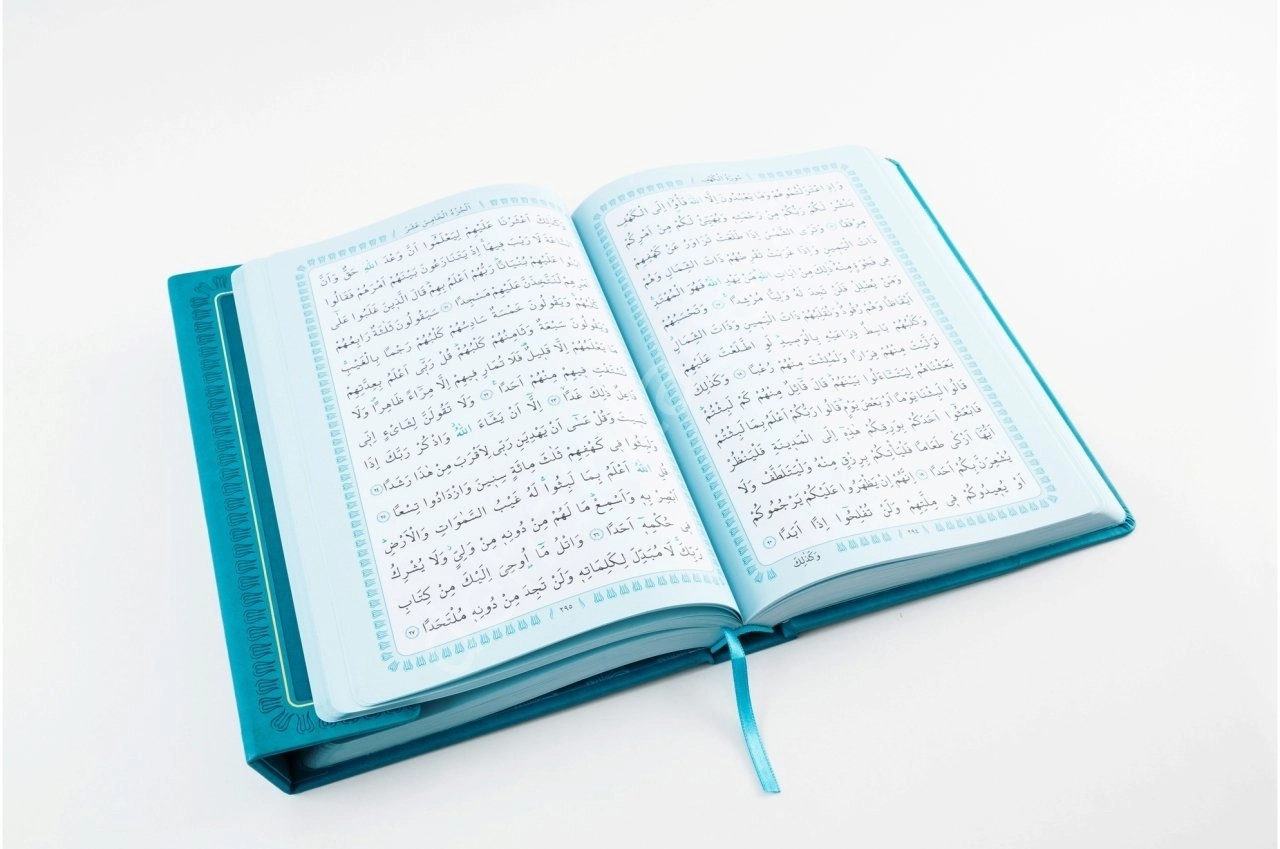 سُورَةُ الْكَهْفِ
وَاِذِ اعْتَزَلْتُمُوهُمْ وَمَا يَعْبُدُونَ اِلَّا اللّٰهَ فَأْوُٓا اِلَى الْكَهْفِ
يَنْشُرْ لَكُمْ رَبُّكُمْ مِنْ رَحْمَتِهٖ وَيُهَيِّئْ لَكُمْ مِنْ اَمْرِكُمْ
مِرْفَقًا ١٦ وَتَرَى الشَّمْسَ اِذَا طَلَعَتْ تَزَاوَرُ عَنْ كَهْفِهِمْ
ذَاتَ الْيَمٖينِ وَاِذَا غَرَبَتْ تَقْرِضُهُمْ ذَاتَ الشِّمَالِ وَهُمْ
فٖى فَجْوَةٍ مِنْهُ ذٰلِكَ مِنْ اٰيَاتِ اللّٰهِ مَنْ يَهْدِ اللّٰهُ فَهُوَ الْمُهْتَدِ
وَمَنْ يُضْلِلْ فَلَنْ تَجِدَ لَهُ وَلِيًّا مُرْشِدًا ١٧ وَتَحْسَبُهُمْ
اَيْقَاظًا وَهُمْ رُقُودٌ وَنُقَلِّبُهُمْ ذَاتَ الْيَمٖينِ وَذَاتَ الشِّمَالِ
وَكَلْبُهُمْ بَاسِطٌ ذِرَاعَيْهِ بِالْوَصٖيدِ لَوِ اطَّلَعْتَ عَلَيْهِمْ
لَوَلَّيْتَ مِنْهُمْ فِرَارًا وَلَمُلِئْتَ مِنْهُمْ رُعْبًا ١٨ وَكَذٰلِكَ
بَعَثْنَاهُمْ لِيَتَسَٓاءَلُوا بَيْنَهُمْ قَالَ قَٓائِلٌ مِنْهُمْ كَمْ لَبِثْتُمْ
قَالُوا لَبِثْنَا يَوْمًا اَوْ بَعْضَ يَوْمٍ قَالُوا رَبُّكُمْ اَعْلَمُ بِمَا لَبِثْتُمْ
فَابْعَثُٓوا اَحَدَكُمْ بِوَرِقِكُمْ هٰذِهٖٓ اِلَى الْمَدٖينَةِ فَلْيَنْظُرْ
اَيُّهَٓا اَزْكٰى طَعَامًا فَلْيَأْتِكُمْ بِرِزْقٍ مِنْهُ وَلْيَتَلَطَّفْ وَلَا
يُشْعِرَنَّ بِكُمْ اَحَدًا ١٩ اِنَّهُمْ اِنْ يَظْهَرُوا عَلَيْكُمْ يَرْجُمُوكُمْ
اَوْ يُعٖيدُوكُمْ فٖى مِلَّتِهِمْ وَلَنْ تُفْلِحُٓوا اِذًا اَبَدًا ٢٠
٢٩٤
وَكَذٰلِكَ
اَلْجُزْءُ الْخَامِسَ عَشَرَ
وَكَذٰلِكَ اَعْثَرْنَا عَلَيْهِمْ لِيَعْلَمُٓوا اَنَّ وَعْدَ اللّٰهِ حَقٌّ وَاَنَّ
السَّاعَةَ لَا رَيْبَ فٖيهَا اِذْ يَتَنَازَعُونَ بَيْنَهُمْ اَمْرَهُمْ فَقَالُوا
ابْنُوا عَلَيْهِمْ بُنْيَانًا رَبُّهُمْ اَعْلَمُ بِهِمْ قَالَ الَّذٖينَ غَلَبُوا عَلٰٓى
اَمْرِهِمْ لَنَتَّخِذَنَّ عَلَيْهِمْ مَسْجِدًا ٢١ سَيَقُولُونَ ثَلٰثَةٌ رَابِعُهُمْ
كَلْبُهُمْ وَيَقُولُونَ خَمْسَةٌ سَادِسُهُمْ كَلْبُهُمْ رَجْمًا بِالْغَيْبِ
وَيَقُولُونَ سَبْعَةٌ وَثَامِنُهُمْ كَلْبُهُمْ قُلْ رَبّٖٓى اَعْلَمُ بِعِدَّتِهِمْ
مَا يَعْلَمُهُمْ اِلَّا قَلٖيلٌ فَلَا تُمَارِ فٖيهِمْ اِلَّا مِرَٓاءً ظَاهِرًا وَلَا
تَسْتَفْتِ فٖيهِمْ مِنْهُمْ اَحَدًا ٢٢ وَلَا تَقُولَنَّ لِشَاىْءٍ اِنّٖى
فَاعِلٌ ذٰلِكَ غَدًا ٢٣ اِلَّٓا اَنْ يَشَٓاءَ اللّٰهُ وَاذْكُرْ رَبَّكَ اِذَا
نَسٖيتَ وَقُلْ عَسٰٓى اَنْ يَهْدِيَنِ رَبّٖى لِاَقْرَبَ مِنْ هٰذَا رَشَدًا ٢٤
وَلَبِثُوا فٖى كَهْفِهِمْ ثَلٰثَ مِائَةٍ سِنٖينَ وَازْدَادُوا تِسْعًا ٢٥
قُلِ اللّٰهُ اَعْلَمُ بِمَا لَبِثُوا لَهُ غَيْبُ السَّمٰوَاتِ وَالْاَرْضِ
اَبْصِرْ بِهٖ وَاَسْمِعْ مَا لَهُمْ مِنْ دُونِهٖ مِنْ وَلِىٍّ وَلَا يُشْرِكُ
فٖى حُكْمِهٖٓ اَحَدًا ٢٦ وَاتْلُ مَٓا اُوحِىَ اِلَيْكَ مِنْ كِتَابِ
رَبِّكَ لَا مُبَدِّلَ لِكَلِمَاتِهٖ وَلَنْ تَجِدَ مِنْ دُونِهٖ مُلْتَحَدًا ٢٧
٢٩٥